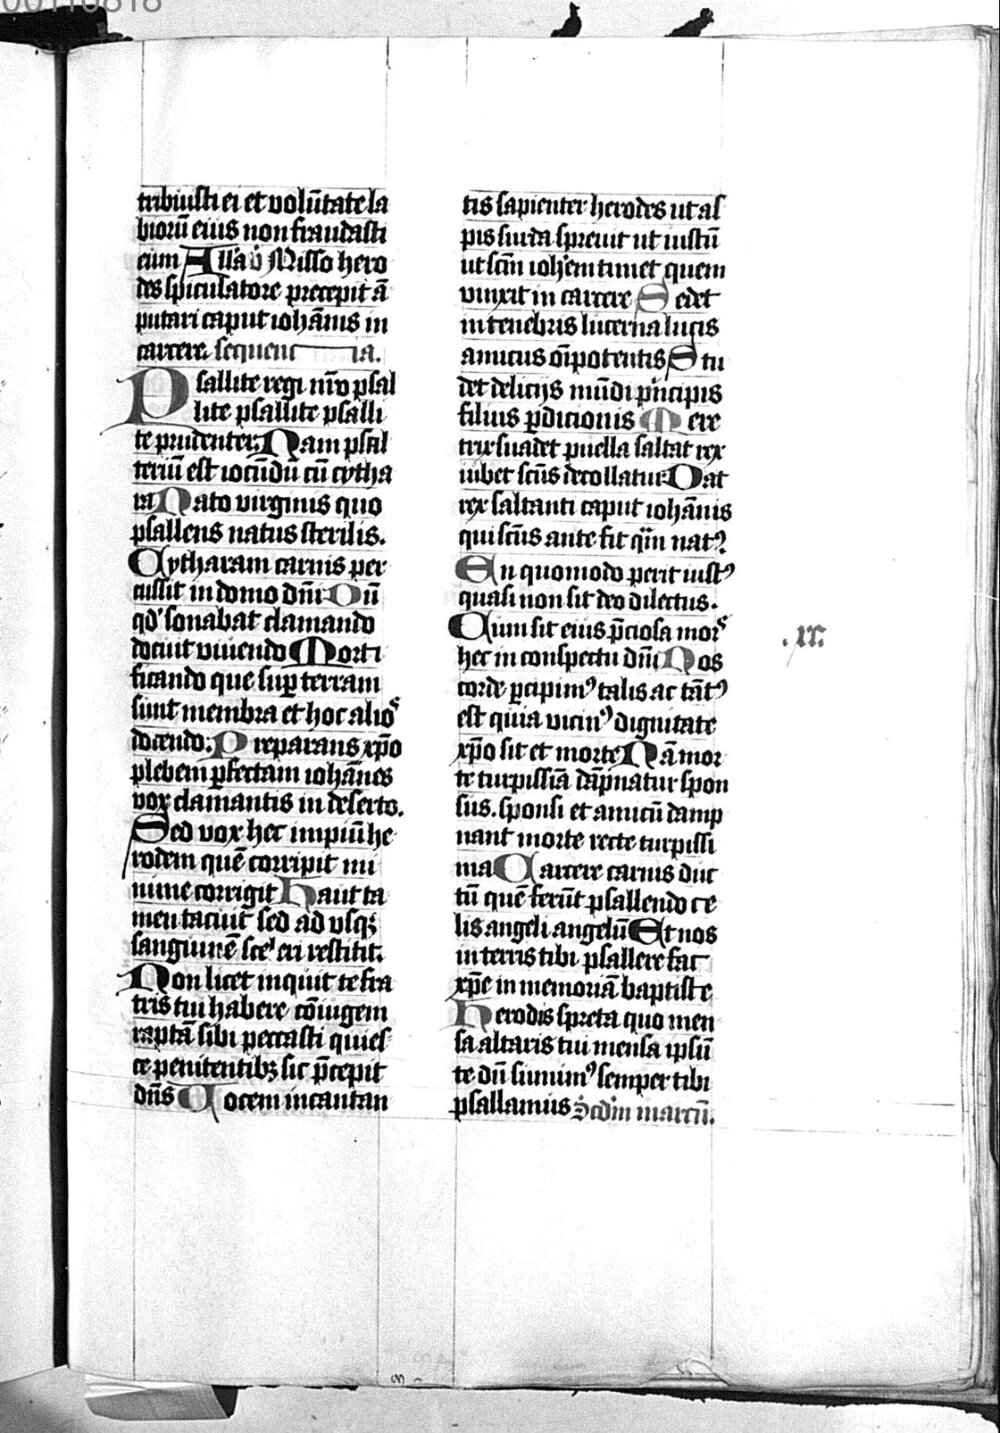 00116818
tribuisti ei et volūtate la
biorū eius non fraudasti
eum Alla ṽ Misso hero
des spiculatore precepit ā
putari caput iohānis in
carcere. sequentia.
Psallite regi nr̄o psal
lite psallite psalli
te prudenter. Nam psal
teriū est iocūdū cū cytha
ra Nato virginis quo
psallens natus sterilis.
Cytharam carnis per
cussit in domo dn̄i Dū
qd' sonabat clamando
docuit viuendo Morti
ficando que sup̱ terram
sunt membra et hoc alios
docendo; Preparans xp̄o
plebem ꝑfectam iohānes
vox clamantis in deserto.
Sed vox hec impiū he
rodem quē corripit mi
nime corrigit Haut ta
men tacuit sed ad vsqꝫ
sanguinē scel' ei restitit.
Non licet inquit te fra
tris tui habere cōiugem
raptā sibi peccasti quies
ce penitentibꝫ sic p̄cepit
dn̄s Vocem incantan
tis sapienter herodes ut as
pis surda spreuit ut iustū
ut scm̄ ioh'em timet quem
vinxit in carcere Sedet
in tenebris lucerna lucis
amicus oīpotentis Stu
det delicijs mūdi pͥncipis
filius ꝑdicionis Mere
trix suadet puella saltat rex
iubet scūs decollatur Dat
rex saltanti caput iohānis
qui scūs ante fit qͣm natꝰ
En quomodo perit iustꝰ
quasi non sit deo dilectus.
Cum sit eius p̄ciosa mors
hec in conspectu dn̄i Nos
corde ꝑcipimꝰ talis ac tātꝰ
est quia vicinꝰ dignitate
xp̄o sit et morte Nā mor
te turpissīa dāpnatur spon
sus. sponsi et amicū damp
nant morte recte turpissi
ma Carcere carnis duc
tū quē ferūt psallendo ce
lis angeli angelū Et nos
in terris tibi psallere fac
xp̄e in memoriā baptiste
Herodis spreta quo men
sa altaris tui mensa ipsū
te dū sumimꝰ semper tibi
psallamus Scdm̄ marcū.